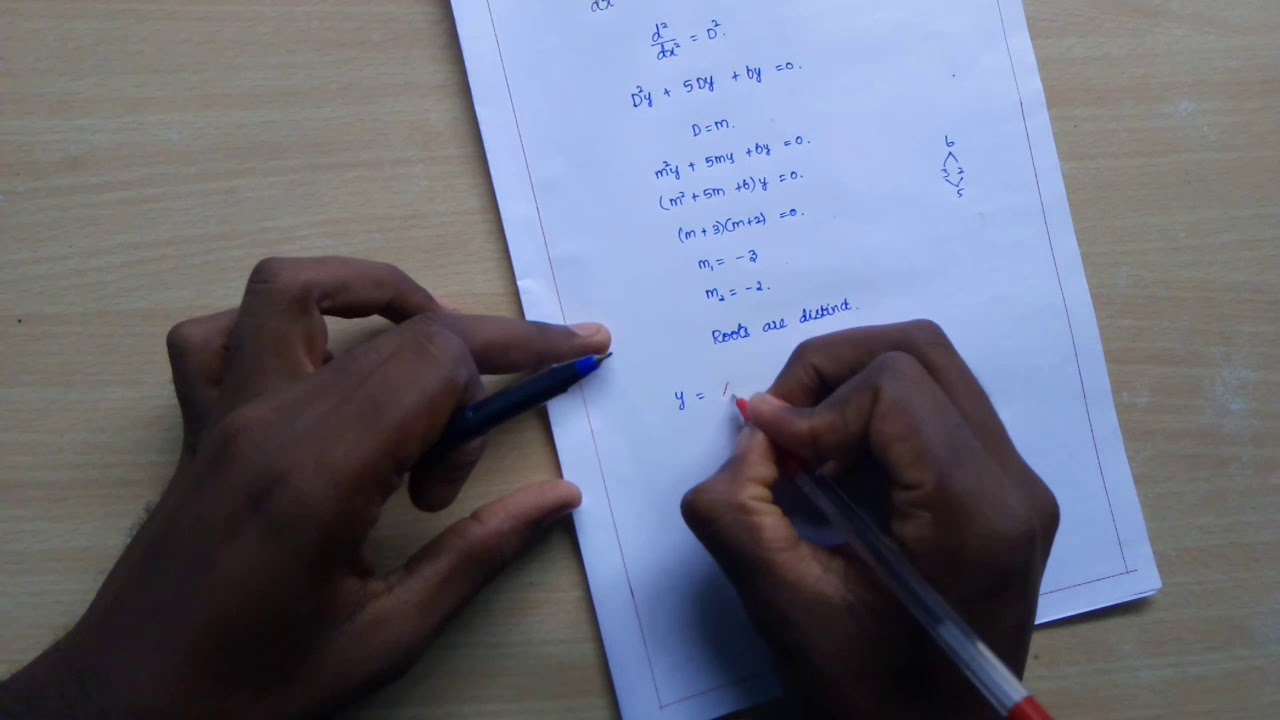 dx
d²/dx² = D².
D²y + 5Dy + 6y = 0.
D = m.
m²y + 5my + 6y = 0.
(m² + 5m + 6)y = 0.
(m + 3)(m + 2) = 0.
m₁ = -3
m₂ = -2.
Roots are distinct.
y =
6
3 2
5